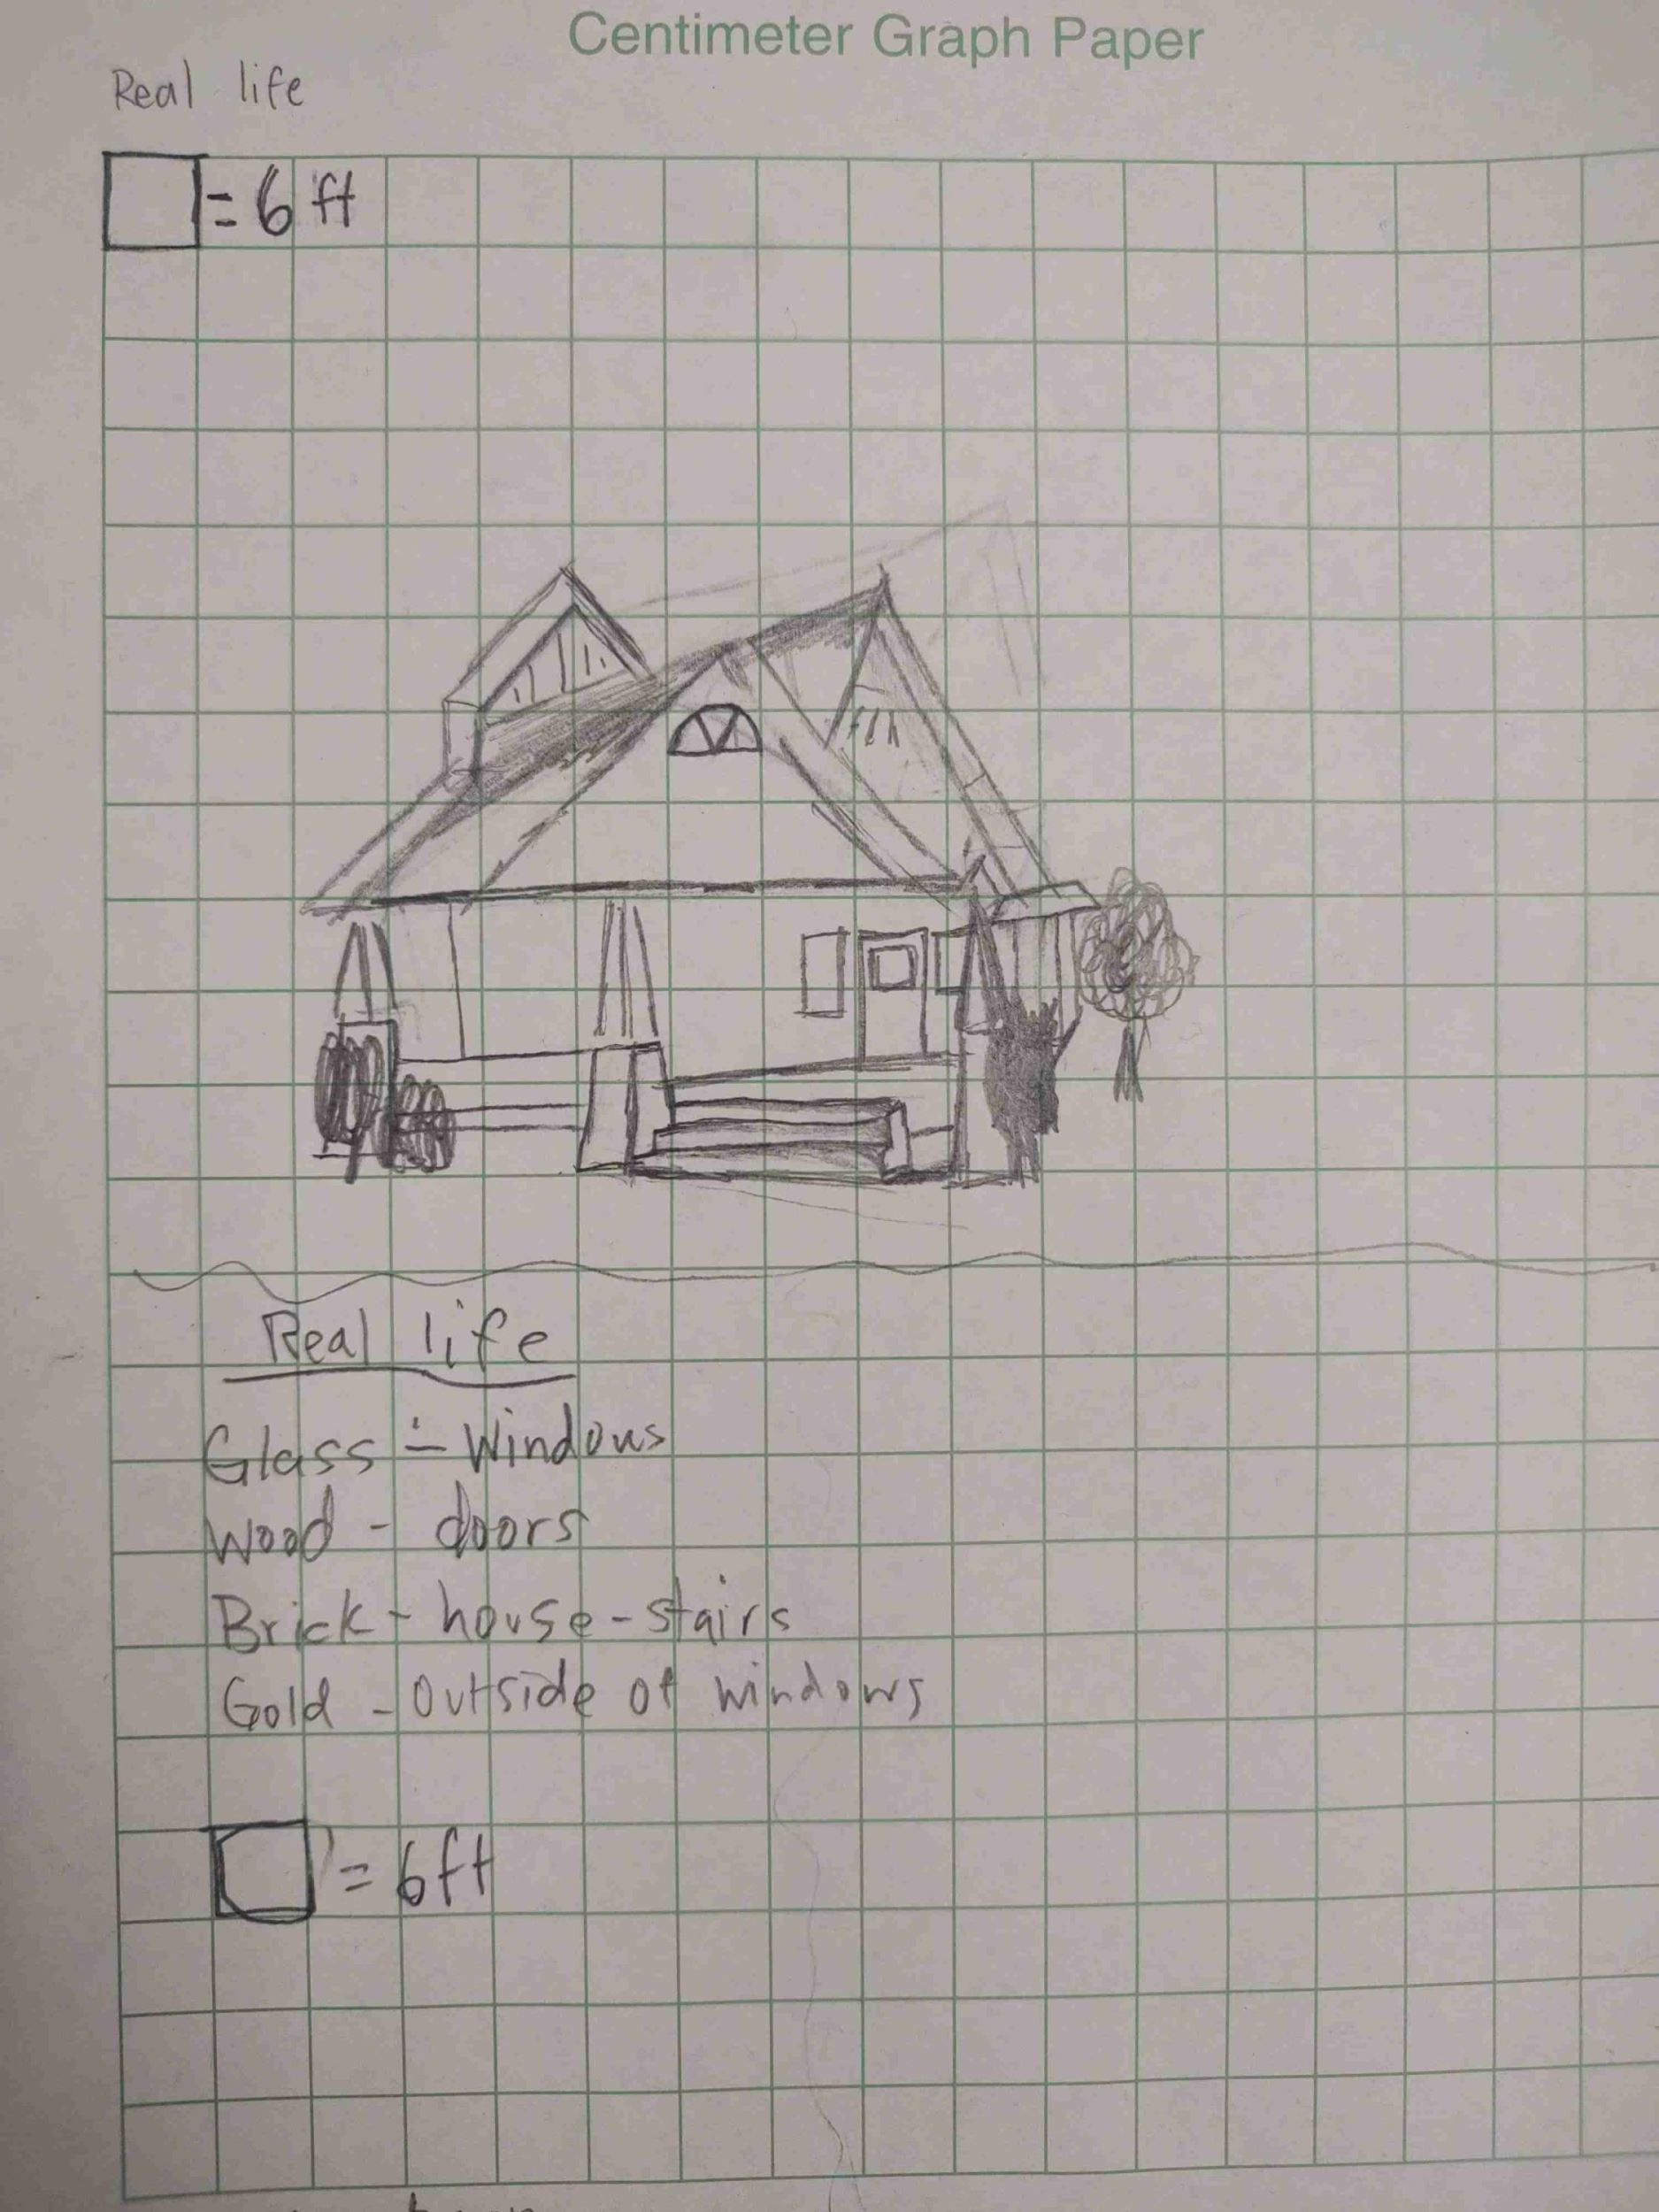 Centimeter Graph Paper
Real life
= 6 ft
Real life
Glass - Windows
Wood - doors
Brick - house - stairs
Gold - Outside of windows
= 6ft